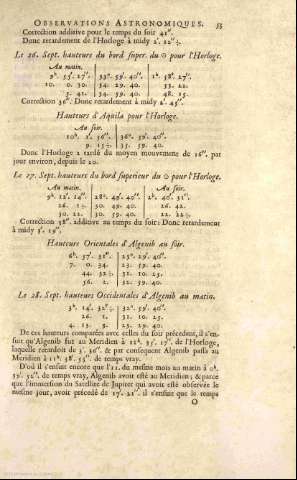 OBSERVATIONS ASTRONOMIQUES. 53
Correction additive pour le temps du soir 41''.
Donc retardement de l'Horloge à midy 2'. 22''½.
Le 26. Sept. hauteurs du bord super. du ☉ pour l'Horloge.
Au matin.
9h. 55'. 27''. 33°. 59'. 40''. 1h. 58'. 27''.
10. 0. 30. 34. 29. 40. 53. 22.
5. 41. 34. 59. 40. 48. 15.
Correction 36''. Donc retardement à midy 2'. 45''.
Hauteurs d'Aquila pour l'Horloge.
Au soir.
10h. 2'. 56''. 36°. 59'. 40''.
9. 15. 35. 59. 40.
Donc l'Horloge a tardé du moyen mouvement de 16'', par
jour environ, depuis le 20.
Le 27. Sept. hauteurs du bord superieur du ☉ pour l'Horloge.
Au matin. Au soir.
9h. 12'. 14''. 28°. 49'. 40''. 2h. 40'. 51''.
26. 50. 49. 40. 26. 42.
30. 22. 30. 59. 40. 22.
Correction 38''. additive au temps du soir: Donc retardement
à midy 3'. 19''.
Hauteurs Orientales d'Algenib au soir.
6h. 57'. 31''. 25°. 29'. 40''.
7. 0. 34. 23. 59. 40.
44. 31. 10. 25.
56. 2. 32. 59. 40.
Le 28. Sept. hauteurs Occidentales d'Algenib au matin.
3h. 14'. 32°. 59'. 40''.
26. 1. 31. 10. 25.
4. 13. 9. 25. 29. 40.
De ces hauteurs comparées avec celles du soir précedent, il s'en-
suit qu'Algenib fut au Meridien à 11h. 35'. 17''. de l'Horloge,
laquelle retardoit de 3'. 36''. & par consequent Algenib passa au
Meridien à 11h. 38'. 53''. de temps vray.
D'où il s'ensuit encore que l'11. du mesme mois au matin à 0h.
de temps vray, Algenib avoit esté au Meridien; & parce
que l'immersion du Satellite de Jupiter qui avoit esté observée le
mesme jour, avoit précedé de 17'. 21''. il s'ensuit que le temps
O